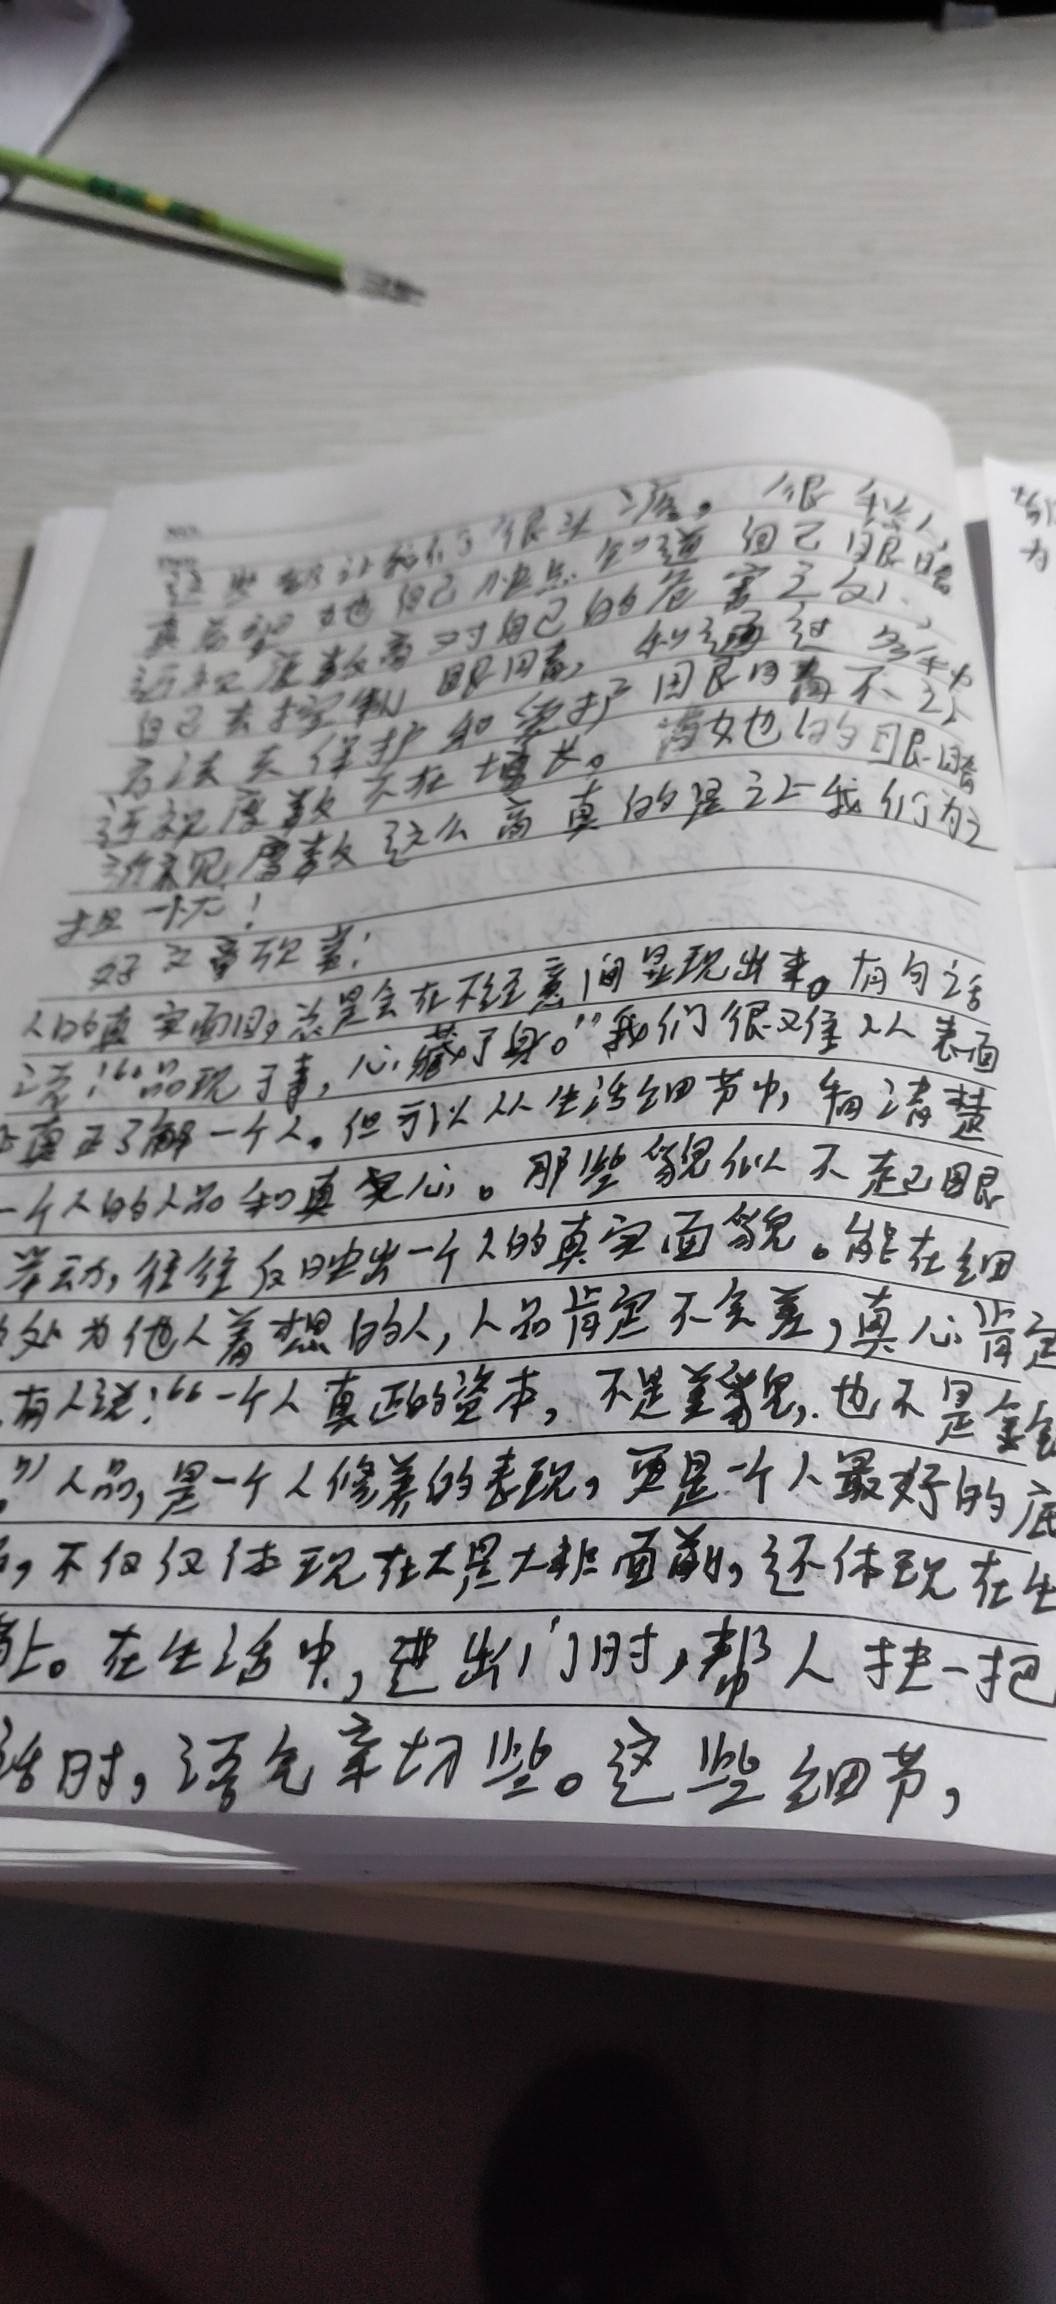 这些都让我们很头疼。很
真希望她自己快点知道自己眼睛
近视度数高对自己的危害之处,
自己去控制眼睛,和通过
方法去保护和爱护眼睛不让
近视度数天在增长。清女也的眼睛
近视度数这么高真的是让我们为之
担忧!
好文章欣赏:
人的真实面目,总是会在不经意间显现出来。有句话
说:“品现于事,心藏于身。”我们很难从表面
真正了解一个人。但可以从生活细节中,看清楚
一个人的人品和真心。那些貌似不起眼
举动,往往反映出一个人的真实面貌。能在细
处为他人着想的人,人品肯定不会差,真心肯定
有人说:“一个人真正的资本,不是美貌,也不是金钱
”人品,是一个人修养的表现,更是一个人最好的底
,不仅仅体现在大是大非面前,还体现在生
上。在生活中,进出门时,帮人扶一把
话时,语气亲切些。这些细节,
为